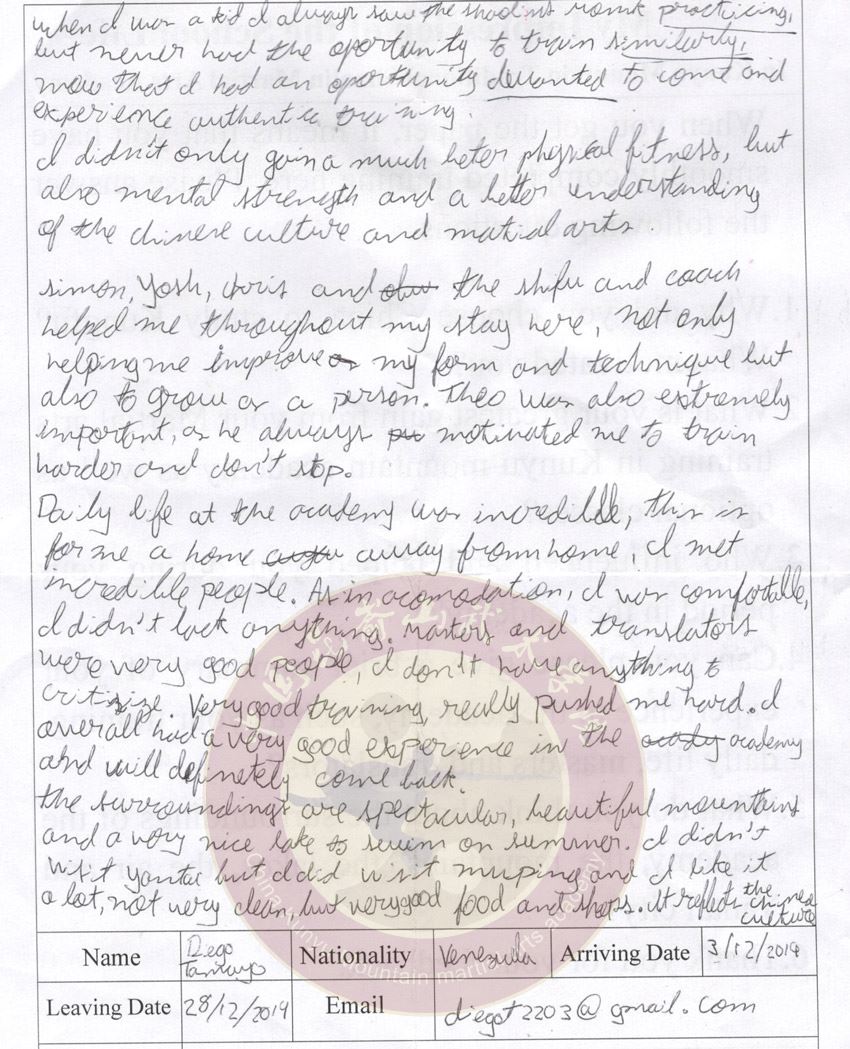 when I was a kid I always saw the shaolins monk practicing,
but never had the oportunity to train similarly,
now that I had an oportunity dewanted to come and
experience authentic training.
I didn't only gain a much beter physical fitness, but
also mental strength and a better understanding
of the chinese culture and matial arts.
simon, Yosh, chris and the shifu and coach
helped me throughout my stay here, not only
helping me improve my form and technique but
also to grow as a person. Theo was also extremely
important, as he always motivated me to train
harder and don't stop.
Daily life at the academy was incredible, this is
for me a home away from home, I met
incredible people. As in acomodation, I was comfortable,
I didn't lack anything. Masters and translators
were very good people, I don't have anything to
critisize. Very good training, really pushed me hard. I
overall had a very good experience in the academy
and will definetely come back.
the surroundings are spectacular, beautiful mountains
and a very nice lake to swim on summer. I didn't
visit yantai but I did visit muping and I like it
a lot, not very clean, but very good food and shops. It reflects the chinese
culture
Name Diego Tamayo Nationality Venezuela Arriving Date 3/12/2019
Leaving Date 28/12/2019 Email diegot2203@gmail.com
China Kunyu mountain martial arts academy